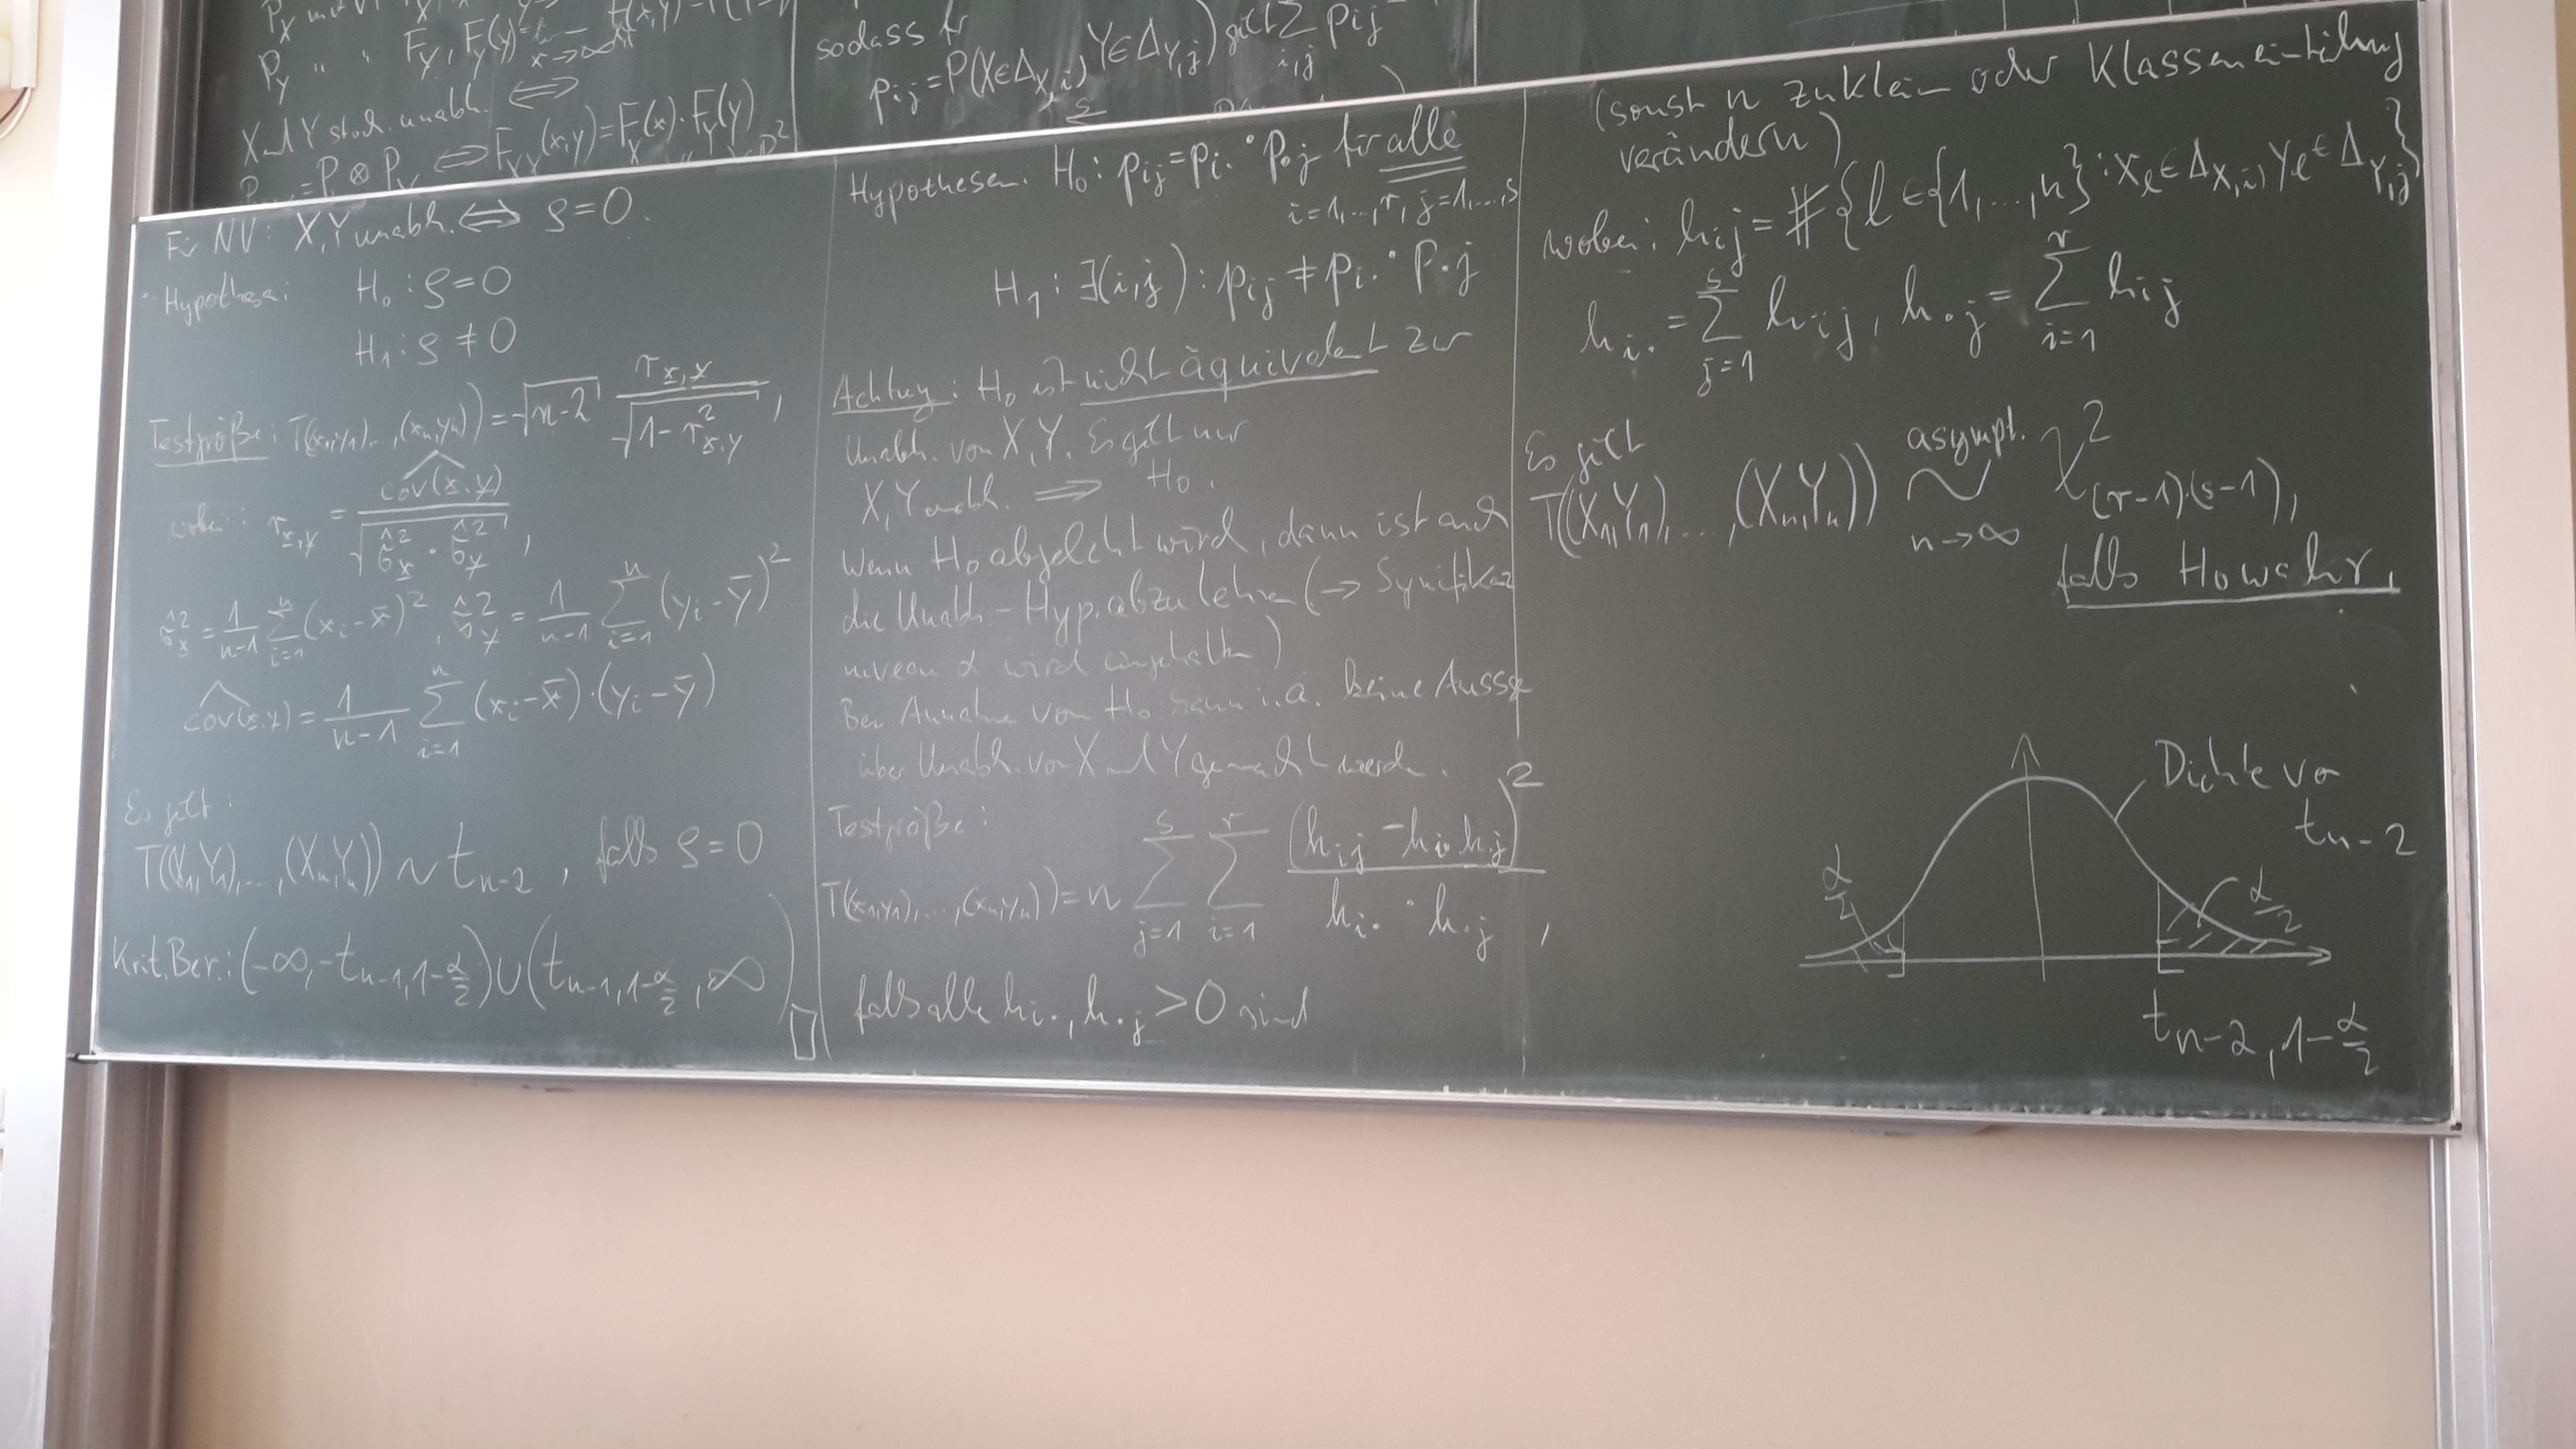 P_Y " " F_Y, F_Y(y)= x→∞
X und Y stoch. unabh. ⟺
= P ⊗ P_Y ⟺ F_{X,Y}(x,y)=F_X(x)·F_Y(y)
sodass für
p_{ij}=P(X∈Δ_{X,i}, Y∈Δ_{Y,j}) gilt Σ_{i,j} p_{ij}
Für NV: X,Y unabh. ⟺ ρ=0.
Hypothese: H_0: ρ=0
H_1: ρ≠0
Testgröße: T((x_1,y_1),...,(x_n,y_n))=√(n-2) r_{x,y}/√(1-r²_{x,y}),
wobei: r_{x,y} = côv(x,y)/√(σ̂²_x · σ̂²_y),
σ̂²_x = 1/(n-1) Σ_{i=1}^n (x_i-x̄)², σ̂²_y = 1/(n-1) Σ_{i=1}^n (y_i-ȳ)²
côv(x,y) = 1/(n-1) Σ_{i=1}^n (x_i-x̄)·(y_i-ȳ)
Es gilt:
T((X_1,Y_1),...,(X_n,Y_n)) ~ t_{n-2}, falls ρ=0
Krit. Ber.: (-∞,-t_{n-1,1-α/2})∪(t_{n-1,1-α/2},∞)
Hypothesen. H_0: p_{ij}=p_{i.}·p_{.j} für alle
i=1,...,r, j=1,...,s
H_1: ∃(i,j): p_{ij} ≠ p_{i.}·p_{.j}
Achtung: H_0 ist nicht äquivalent zur
Unabh. von X,Y. Es gilt nur
X,Y unabh. ⟹ H_0.
Wenn H_0 abgelehnt wird, dann ist auch
die Unabh.-Hyp. abzulehnen (→ Signifikanz
niveau α wird eingehalten)
Bei Annahme von H_0 kann i.a. keine Aussage
über Unabh. von X und Y gemacht werden.
Testgröße:
T((x_1,y_1),...,(x_n,y_n))= n Σ_{j=1}^s Σ_{i=1}^r (h_{ij}-h_{i.}h_{.j})²/(h_{i.}·h_{.j}),
falls alle h_{i.}, h_{.j} >0 sind
(sonst n zu klein oder Klasseneinteilung
verändern)
wobei: h_{ij} = #{l∈{1,...,n}: x_l∈Δ_{X,i}, y_l∈Δ_{Y,j}}
h_{i.} = Σ_{j=1}^s h_{ij}, h_{.j} = Σ_{i=1}^r h_{ij}
Es gilt
T((X_1,Y_1),...,(X_n,Y_n)) asympt. ~ n→∞ χ²_{(r-1)·(s-1)},
falls H_0 wahr.
Dichte von
t_{n-2}
α/2
α/2
t_{n-2,1-α/2}